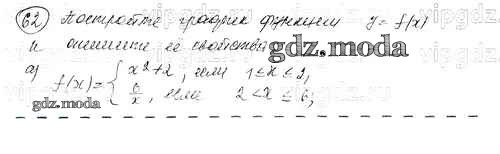 62 Постройте график функции y = f(x)
и опишите её свойства
gdz.moda
а) f(x) = { x²+2, если 1≤x≤2,
6/x, если 2<x≤6;
gdz.moda